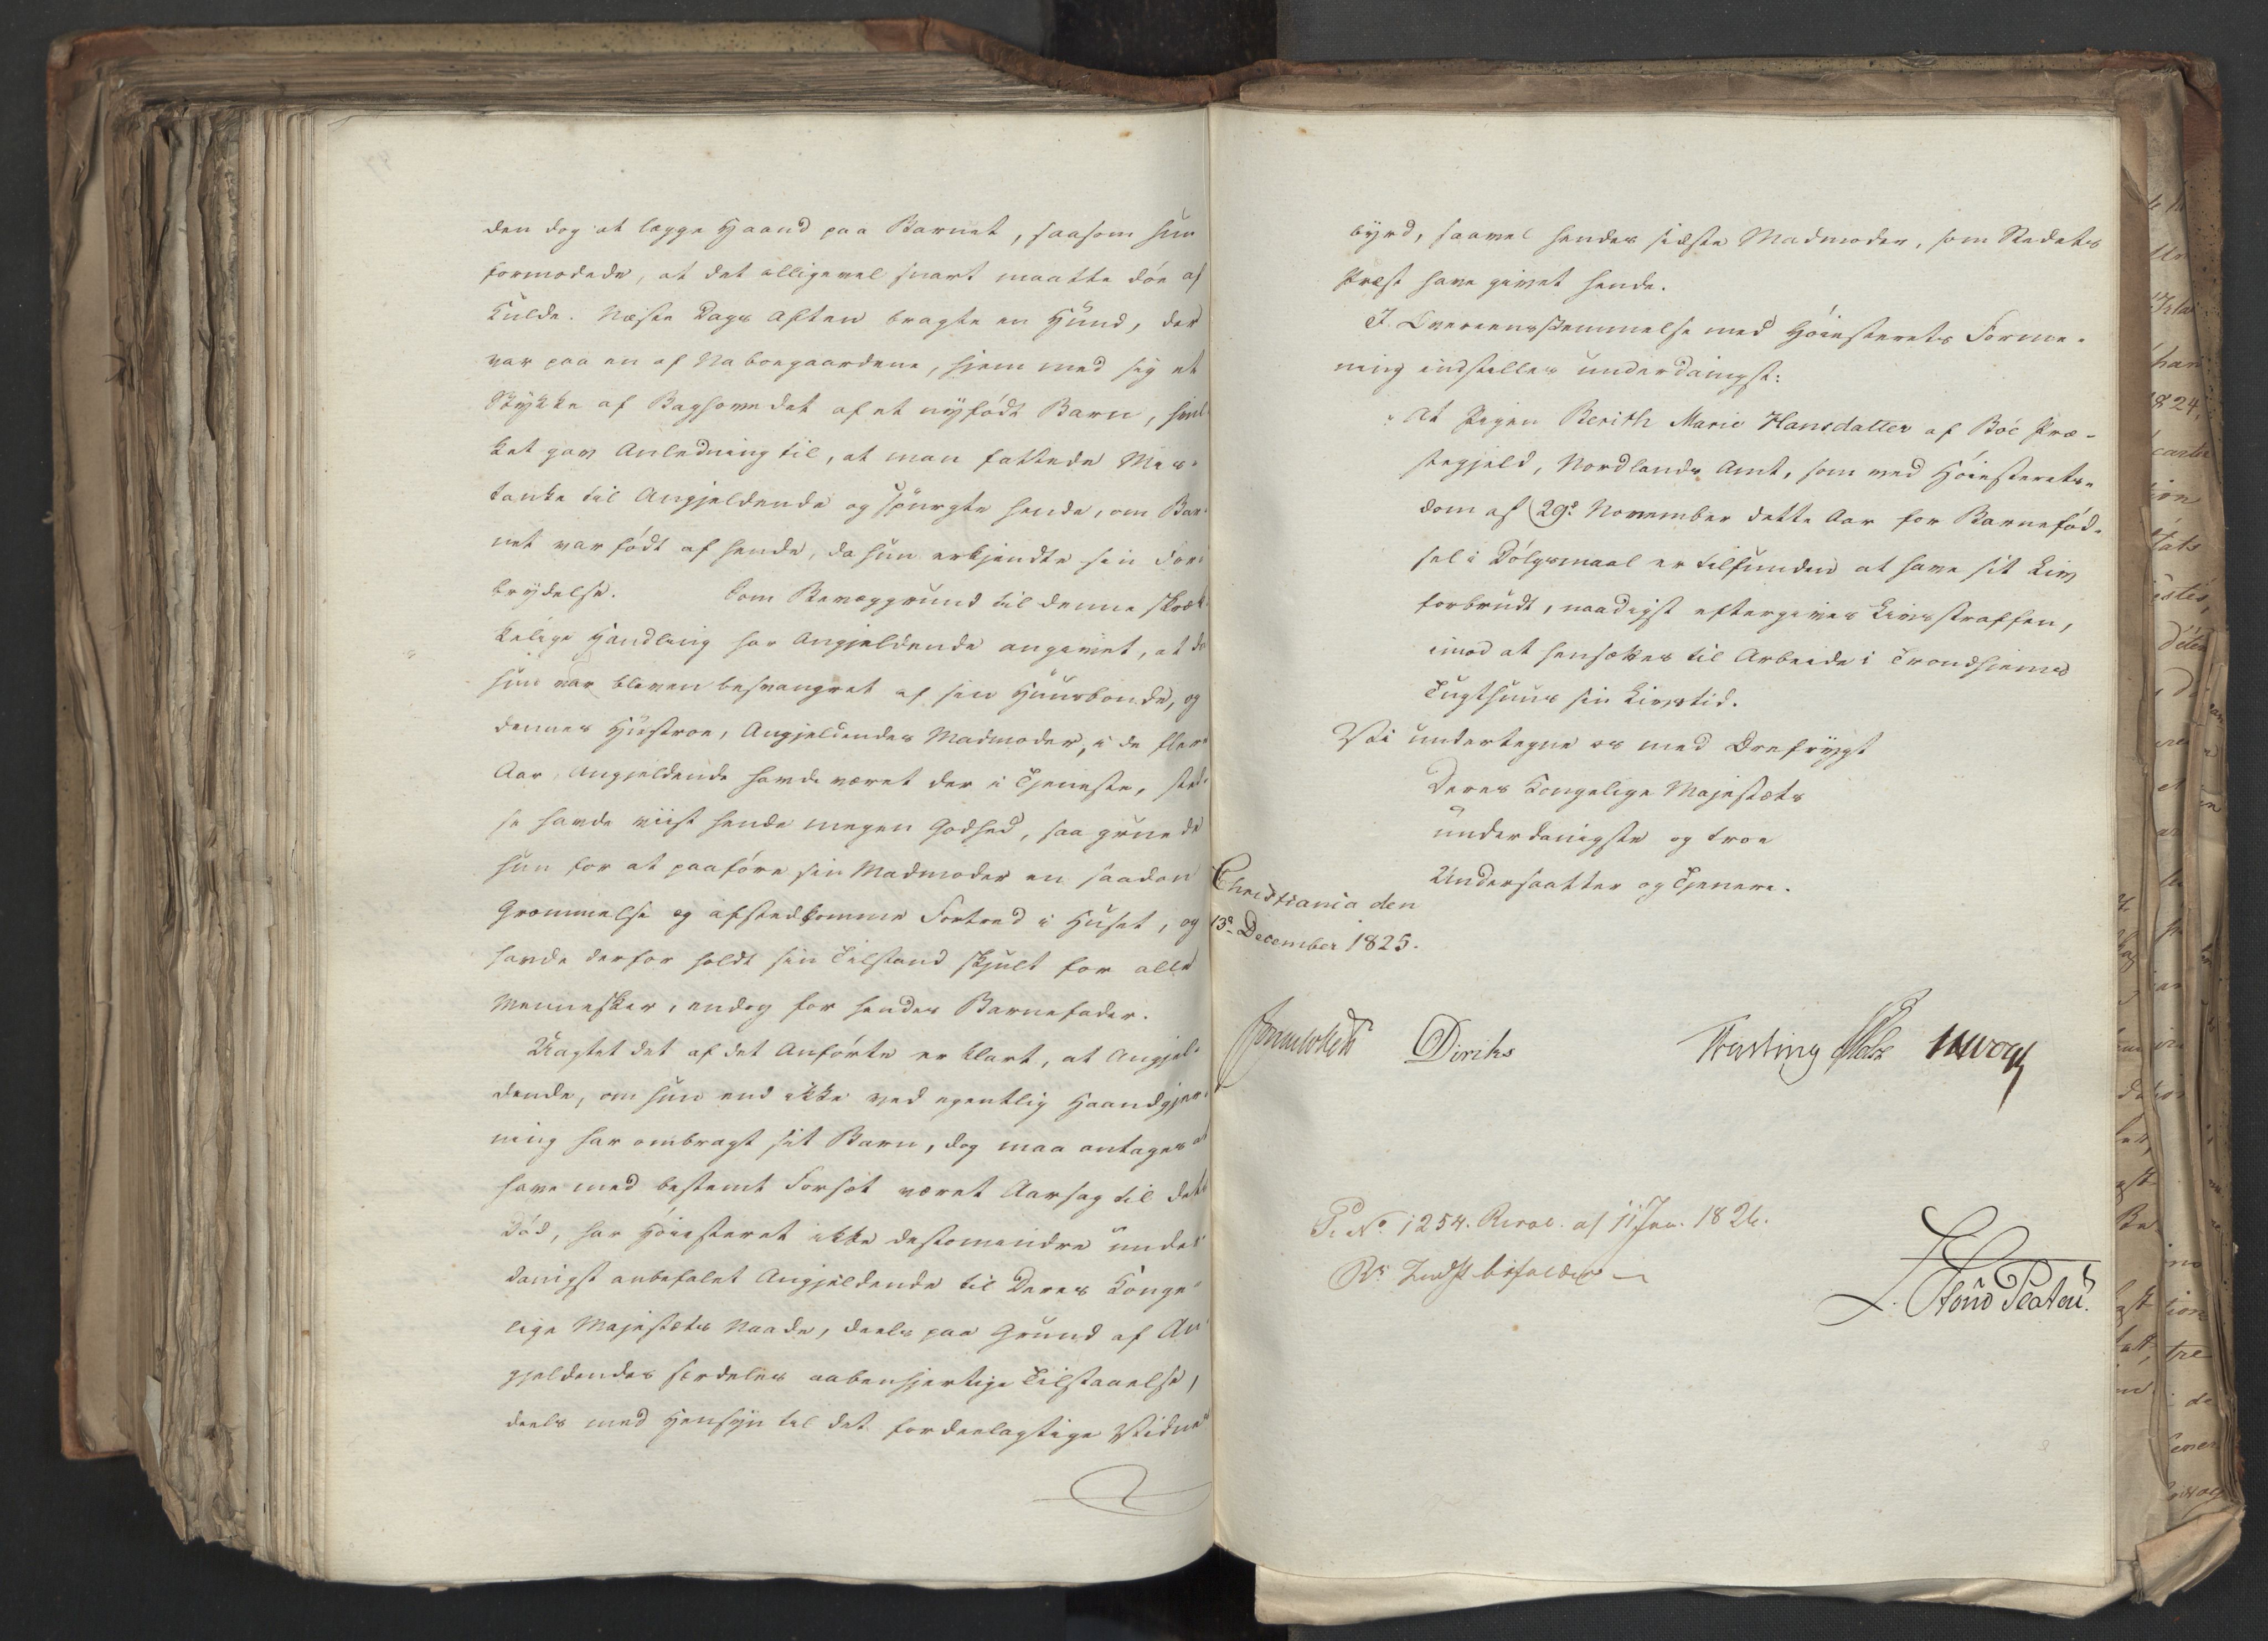 den dog at lægge Haand paa Barnet, saasom hun
formodede, at det alligevel snart maatte døe af
Kulde. Næste Dags Aften bragte en Hund, der
var paa en af Naboegaardene, hjem med sig et
Stykke af Baghovedet af et nyfødt Barn, hvil-
ket gav Anledning til, at man fattede Mis-
tanke til Angjeldende og spurgte hende, om Bar-
net var født af hende, da hun erkjendte sin For-
brydelse. Som Bevæggrund til denne skræk-
kelige Handling har Angjeldende angivet, at da
hun var bleven besvangret af sin Huusbonde, og
dennes Hustroe, Angjeldendes Madmoder, i de flere
Aar, Angjeldende havde været der i Tjeneste, sted-
se havde viist hende megen Godhed, saa gruede
hun for at paaføre sin Madmoder en saadan
Græmmelse og afstedkomme Fortred i Huset, og
havde derfor holdt sin Tilstand skjult for alle
Mennesker, endog for hendes Barnefader.
Uagtet det af det Anførte er klart, at Angjel-
dende, om hun end ikke ved egentlig Haandgjer-
ning har ombragt sit Barn, dog maa antages at
have med bestemt Forsæt været Aarsag til dets
Død, har Høiesteret ikke destomindre under-
danigst anbefalet Angjeldende til Deres Konge-
lige Majestæts Naade, deels paa Grund af An-
gjeldendes særdeles aabenhjertige Tilstaaelse,
deels med Hensyn til det fordeelagtige Vidnes-
byrd, saavel hendes sidste Madmoder, som Stedets
Præst have givet hende.
I Overeensstemmelse med Høiesterets Forme-
ning indstilles underdanigst:
"At Pigen Berith Marie Hansdatter af Böe Præ-
stegjeld, Nordlands Amt, som ved Høiesterets-
dom af 29d November dette Aar for Barnefød-
sel i Dølgsmaal er tilfunden at have sit Liv
forbrudt, naadigst eftergives Livsstraffen,
imod at hensættes til Arbeide i Trondhiems
Tugthuus sin Livstid.
Vi undertegne os med Ærefrygt
Deres Kongelige Majestæts
underdanigste og troe
Undersaatter og Tjenere.
Christiania den
13d December 1825.
Diriks
Treschow
P. No 1254. Resol. af 11 Jan. 1826.
Rs Indst. bifaldes